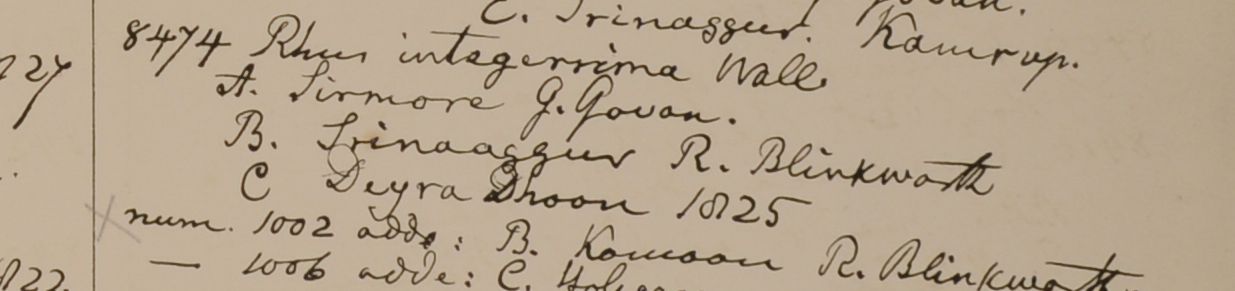 C. Srinaggur. Kamrup.
8474 Rhus integerrima Wall.
A. Sirmore G. Govan.
B. Srinaaggur R. Blinkworth
C Deyra Dhoon 1825
num. 1002 adde: B. Kamaon R. Blinkworth
— 1006 adde: C.